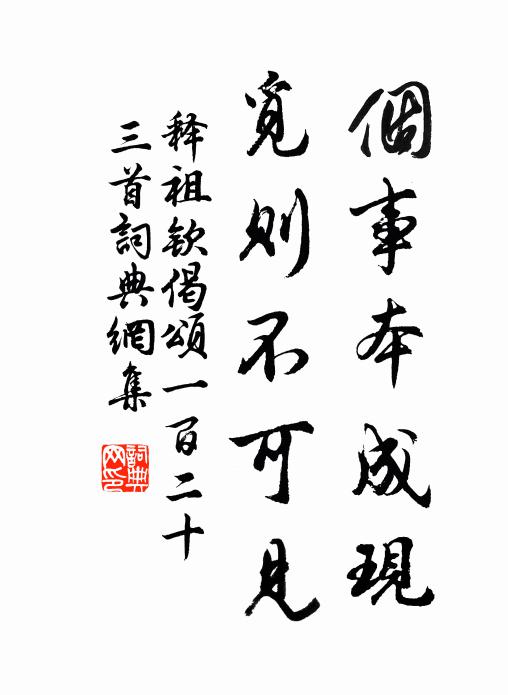 個事本成現
覓則不可見
释祖欽偈頌一百二十
三首詞典網集
詞典網印